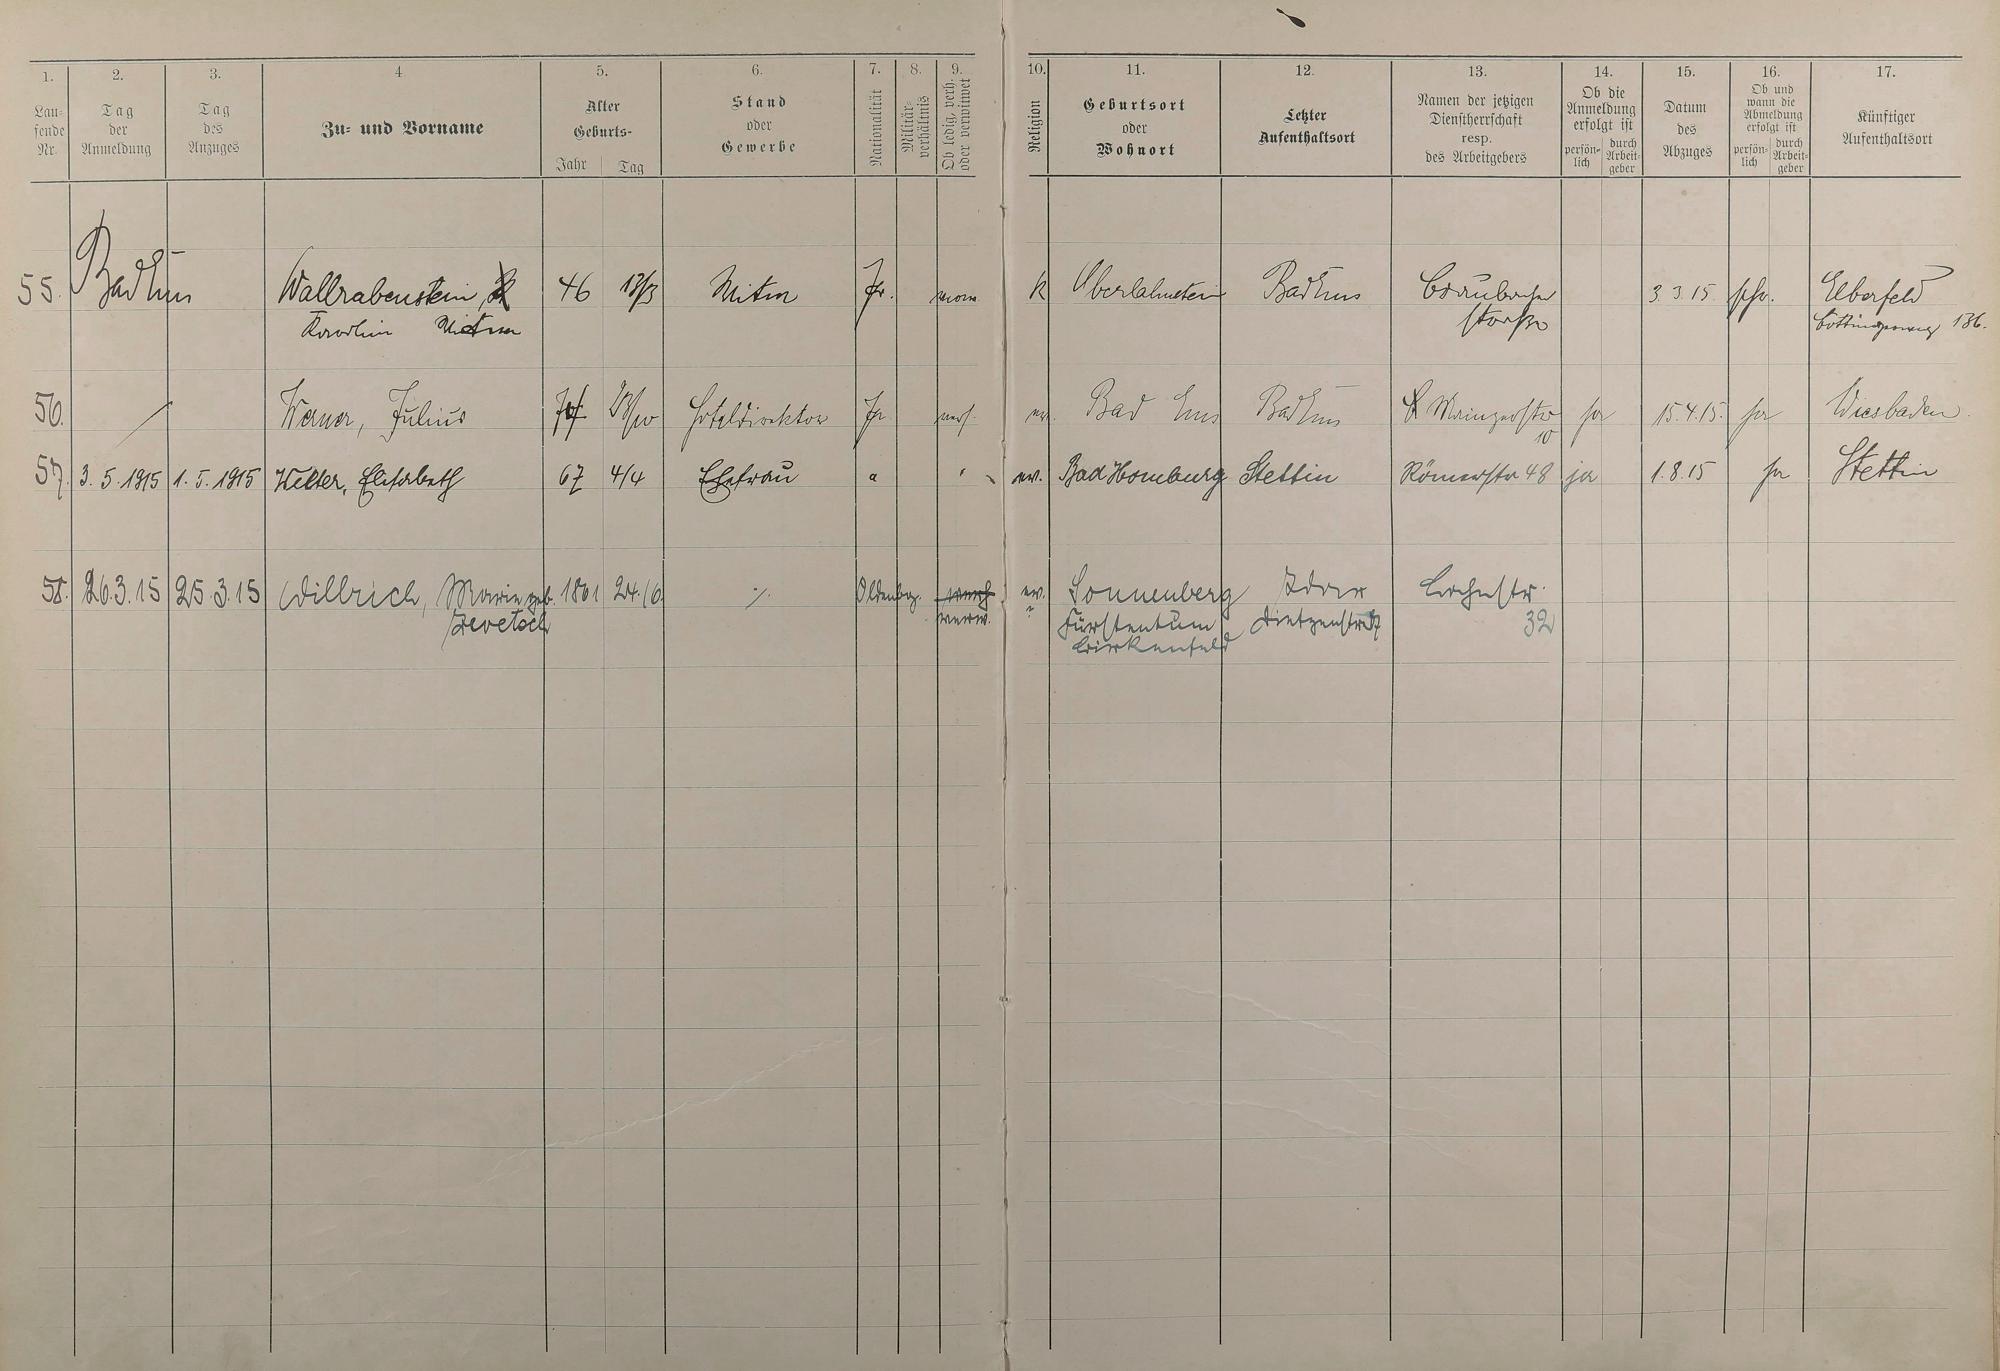 1. 2. 3. 4 5. 6. 7. 8. 9. 10. 11. 12. 13. 14. 15. 16. 17.
Lau-
fende
Nr.
Tag
der
Anmeldung
Tag
des
Anzuges
Zu- und Vorname
Alter
Geburts-
Jahr Tag
Stand
oder
Gewerbe
Nationalität
Militär-
verhältnis
Ob ledig, verh.
oder verwitwet
Religion
Geburtsort
oder
Wohnort
Letzter
Aufenthaltsort
Namen der jetzigen
Dienstherrschaft
resp.
des Arbeitgebers
Ob die
Anmeldung
erfolgt ist
persön-
lich
durch
Arbeit-
geber
Datum
des
Abzuges
Ob und
wann die
Abmeldung
erfolgt ist
persön-
lich
durch
Arbeit-
geber
Künftiger
Aufenthaltsort
55. Bad Ems Wallrabenstein, 46 13/3 Witwe Pr. verw. k Oberlahnstein Bad Ems Braubacher 3.3.15 Elberfeld
Karolin Witwe straße 136.
56. Werner, Julius Hoteldirektor Pr. verh. ev. Bad Ems Bad Ems Mainzerstr ja 15.4.15. ja Wiesbaden
10
57. 3.5.1915 1.5.1915 Elisabeth 67 4/4 Ehefrau " " ev. Bad Homburg Stettin Römerstr 48 ja 1.8.15 ja Stettin
58. 26.3.15 25.3.15 Willrich, Marie geb. 1861 24./6. ./. Oldenbg. verh ev. Sonnenberg Idar Lahnstr.
verw. Fürstentum 32
Birkenfeld